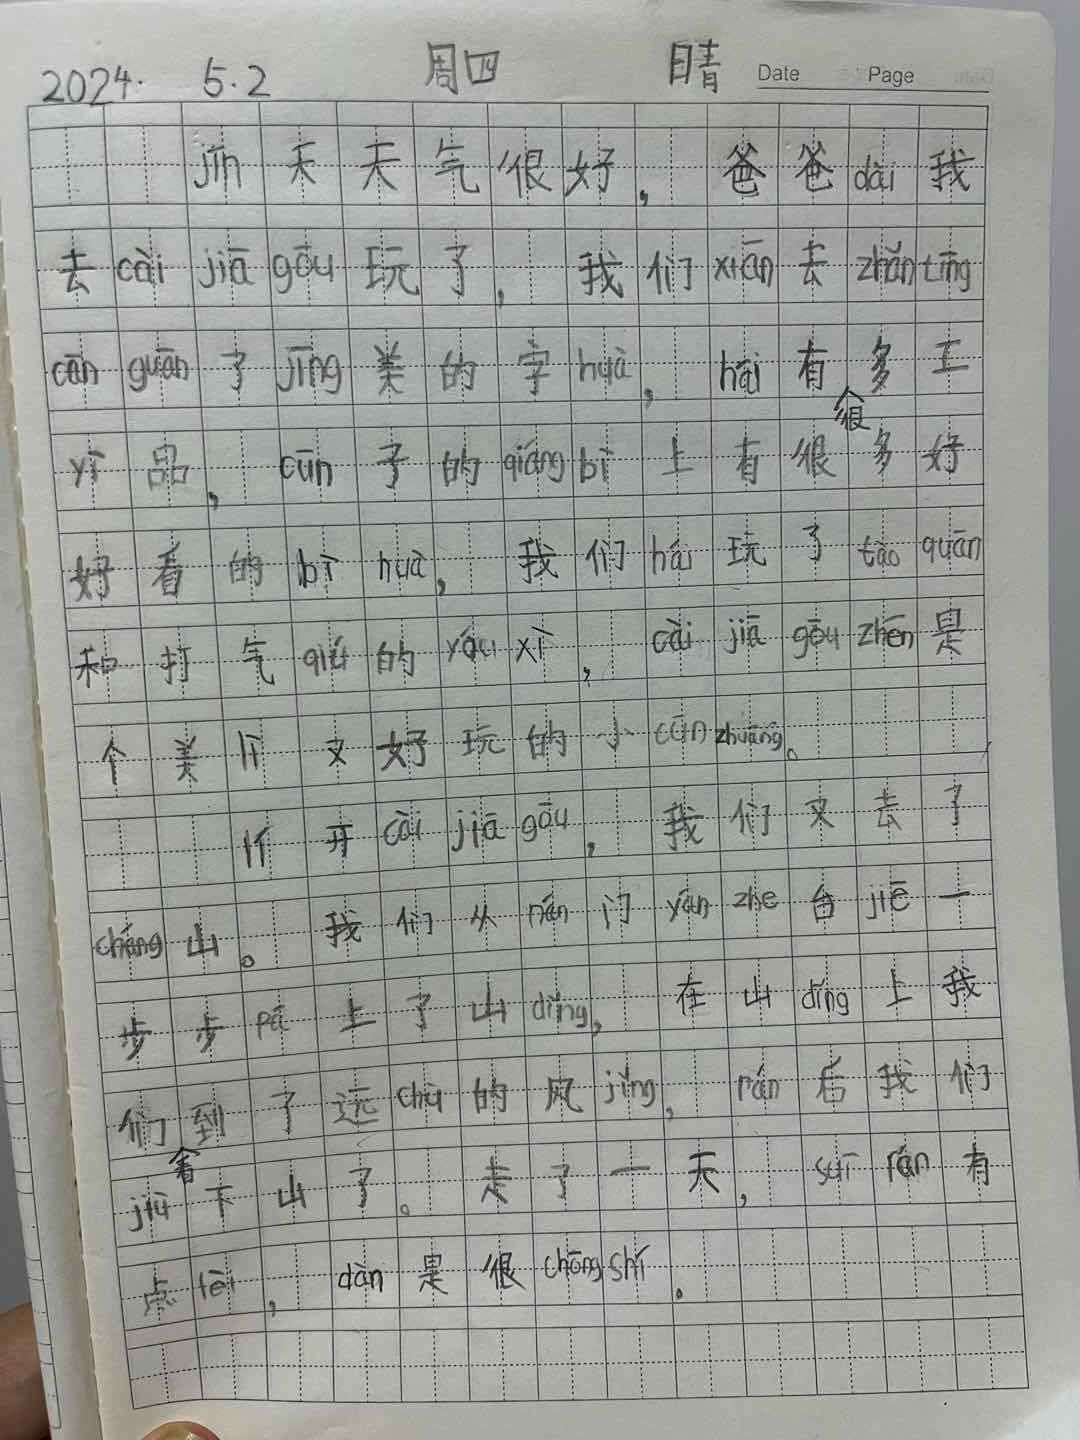 2024. 5.2 周四 晴 Date Page
jīn天天气很好，爸爸dài我
去cài jiā gōu玩了，我们xiān去zhǎn tīng
cān guān了jīng美的字huà，hái有很多工
yì品，cūn子的qiáng bì上有很多好
好看的bì huà，我们hái玩了tào quān
和打气qiú的yóu xì，cài jiā gōu zhēn是
个美lì又好玩的小cūn zhuāng。
lí开cài jiā gōu，我们又去了
cháng山。我们从nán门yán zhe台jiē一
步步pá上了山dǐng，在山dǐng上我
们看到了远chù的风jǐng，rán后我们
jiù下山了。走了一天，suī rán有
点lèi，dàn是很chōng shí。